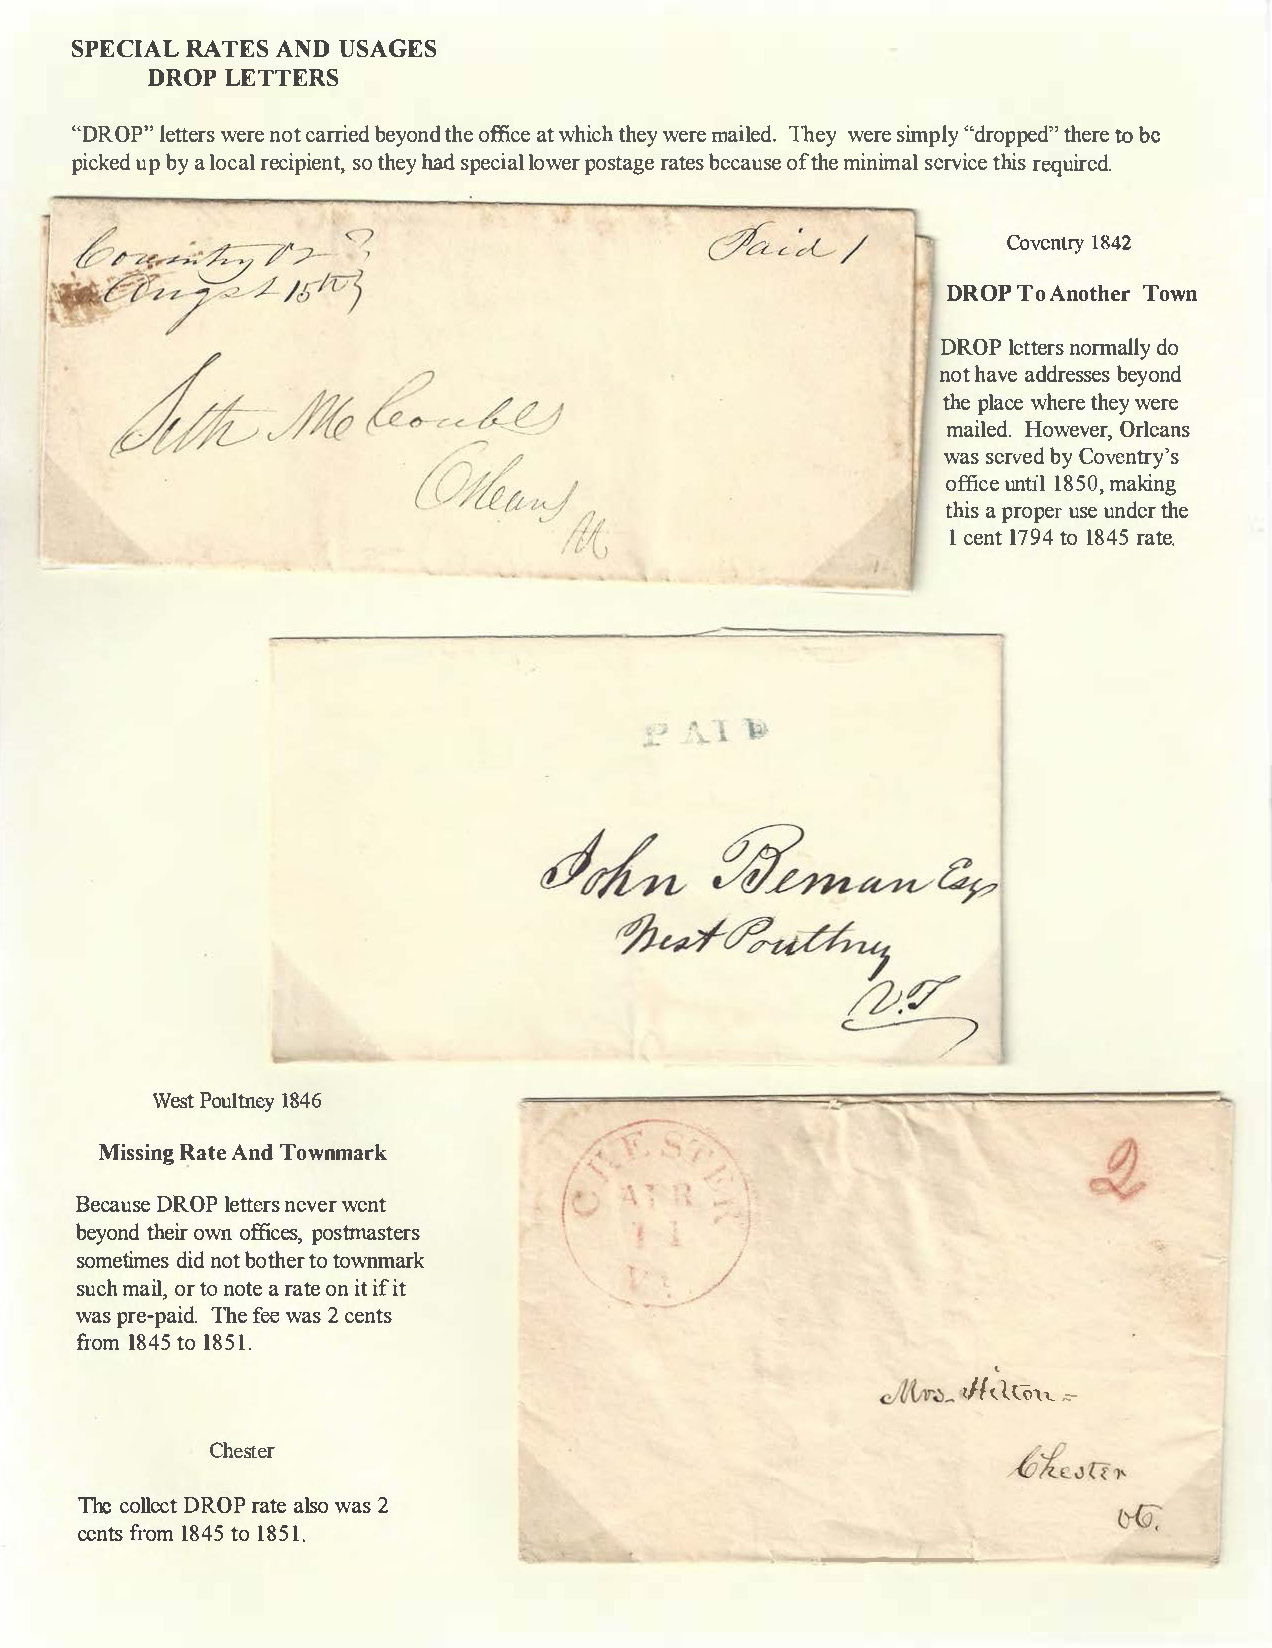 SPECIAL RATES AND USAGES
DROP LETTERS
“DROP” letters were not carried beyond the office at which they were mailed. They were simply “dropped” there to be
picked up by a local recipient, so they had special lower postage rates because of the minimal service this required.
Coventry Vt
Augst 15th
Paid 1
Seth McCoubes
Orleans
Vt
Coventry 1842
DROP To Another Town
DROP letters normally do
not have addresses beyond
the place where they were
mailed. However, Orleans
was served by Coventry’s
office until 1850, making
this a proper use under the
1 cent 1794 to 1845 rate.
PAID
John Beman Esq
West Poultney
V.T
West Poultney 1846
Missing Rate And Townmark
Because DROP letters never went
beyond their own offices, postmasters
sometimes did not bother to townmark
such mail, or to note a rate on it if it
was pre-paid. The fee was 2 cents
from 1845 to 1851.
CHESTER
APR
11
Vt.
2
Mrs. Hilton
Chester
Vt.
Chester
The collect DROP rate also was 2
cents from 1845 to 1851.